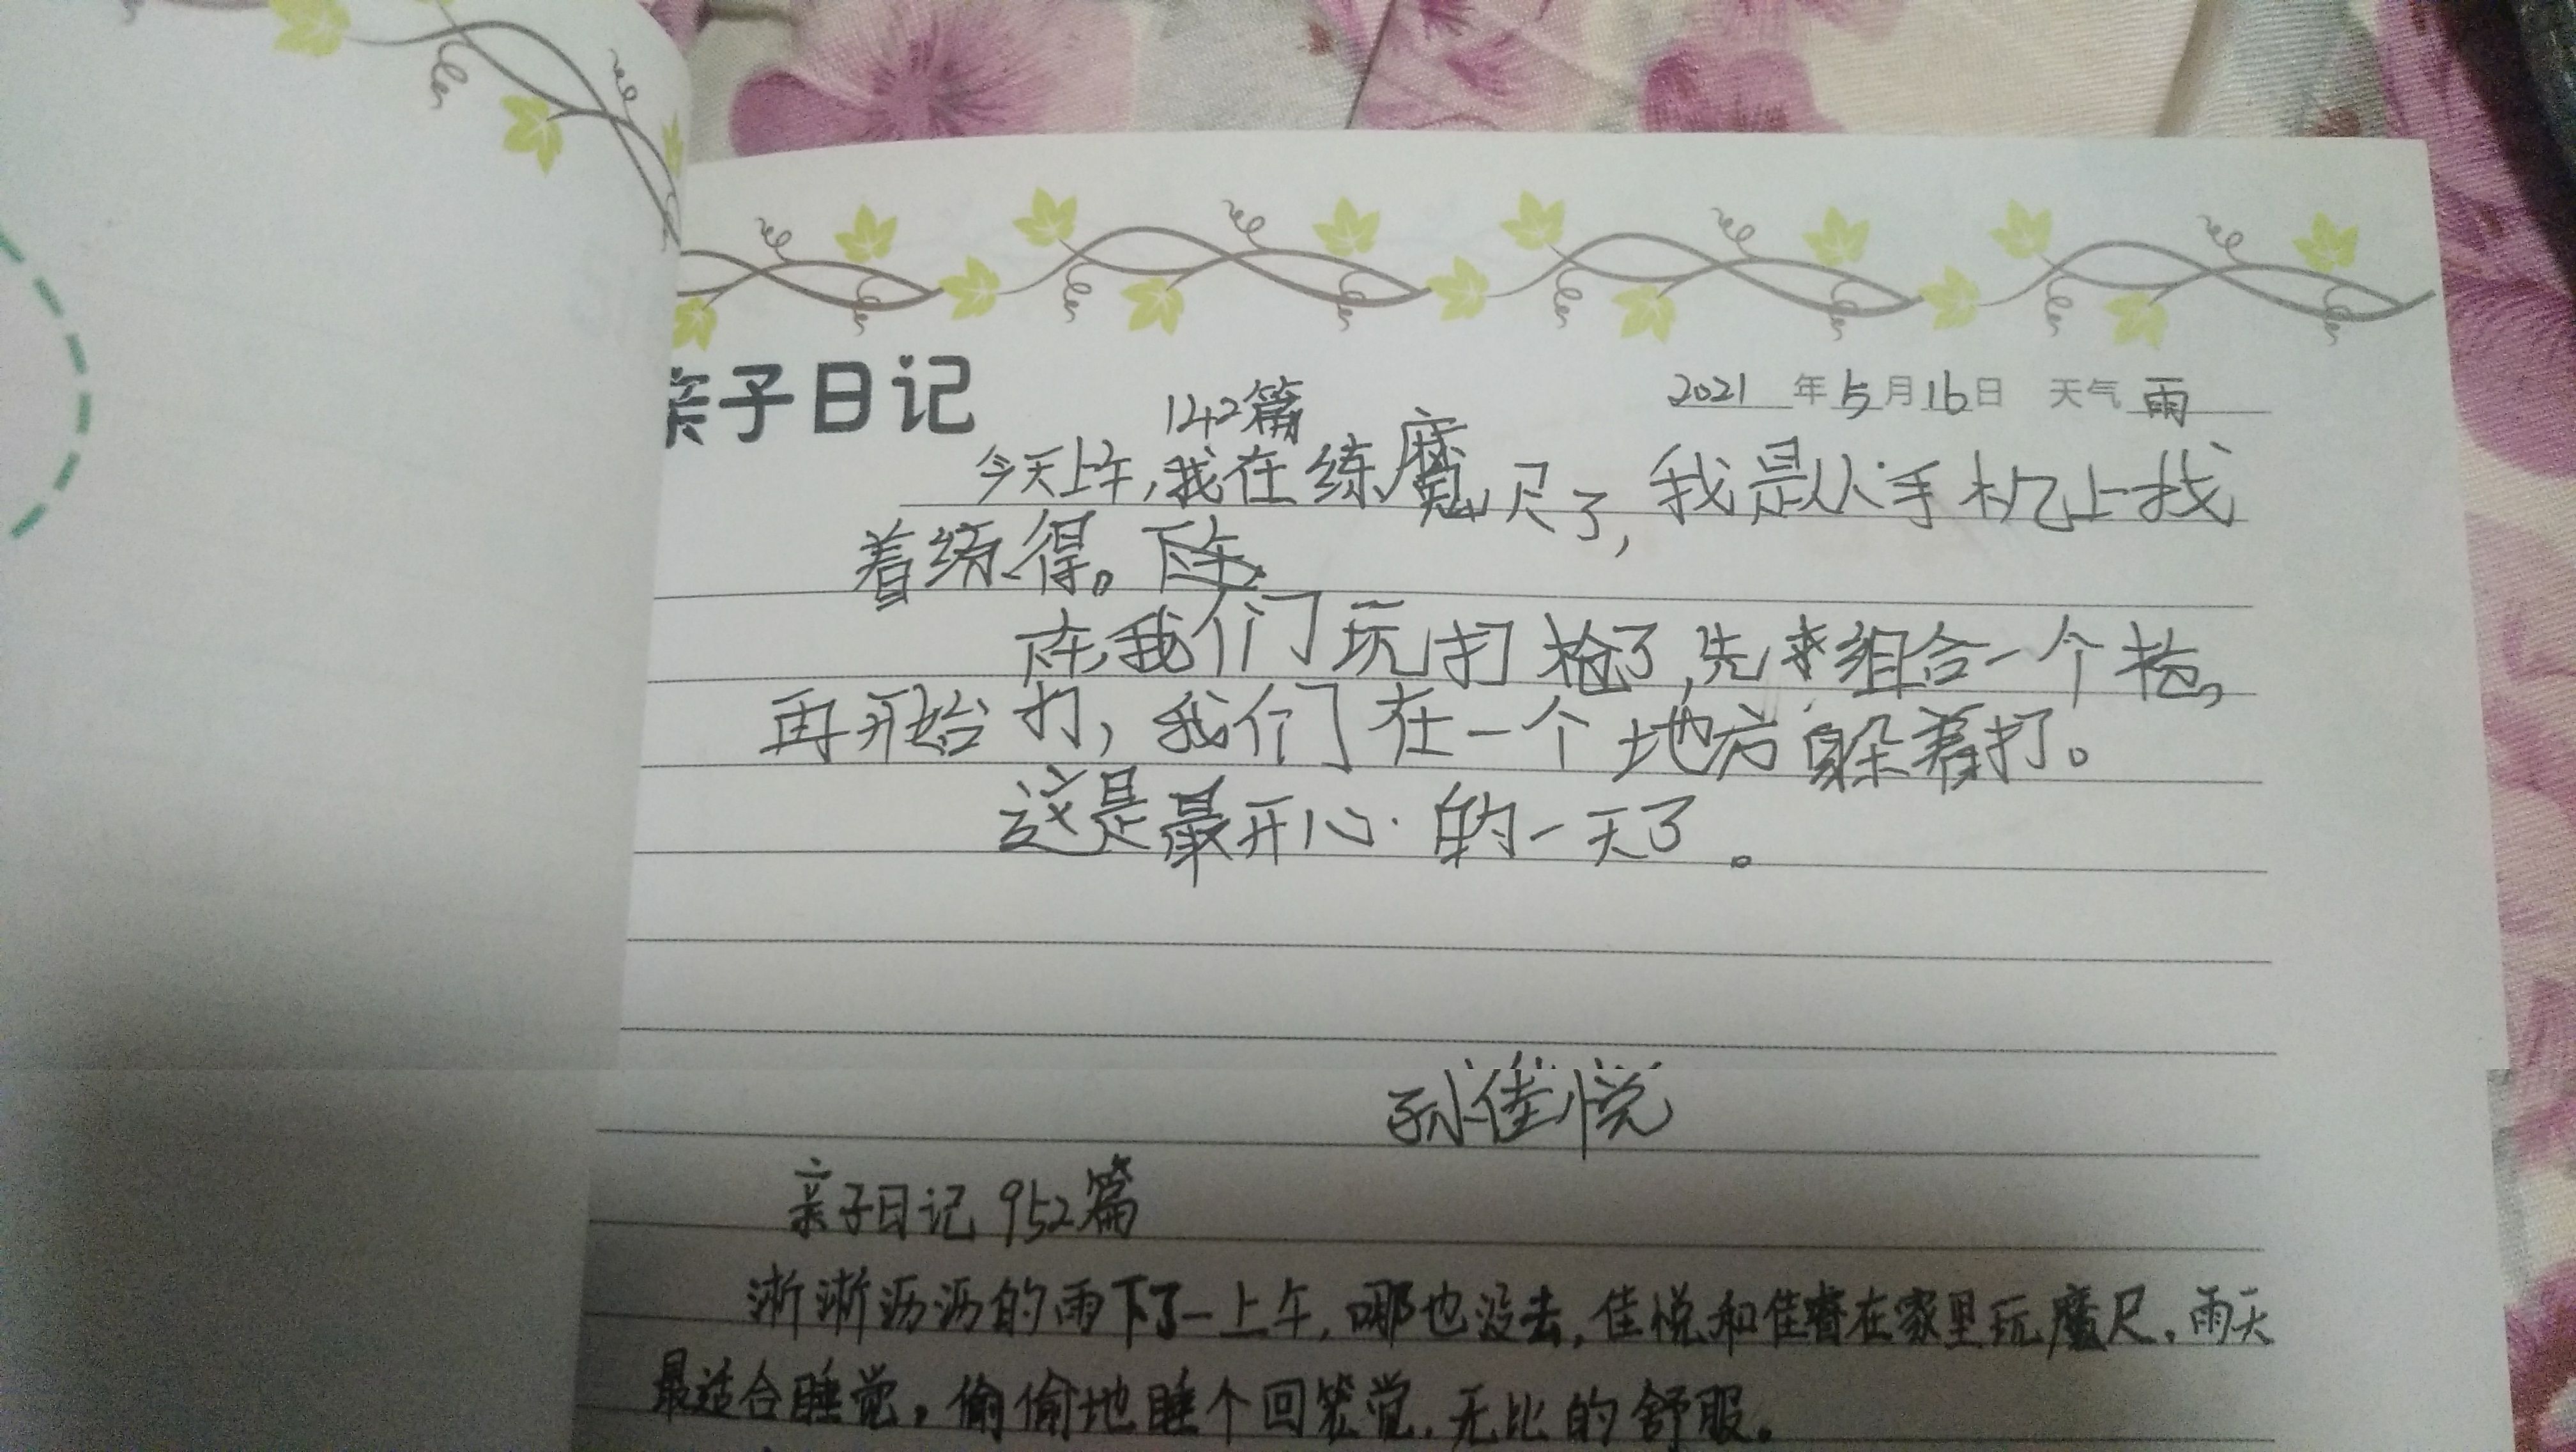 亲子日记
142篇
2021年5月16日 天气 雨
今天上午,我在练魔尺了,我是从手机上找
着练得。下午
下午,我们玩打枪了,先组合一个枪,
再开始打,我们在一个地方躲着打。
这是最开心的一天了。
孙佳悦
亲子日记 952篇
淅淅沥沥的雨下了一上午,哪也没去,佳悦和佳睿在家里玩魔尺,雨天
最适合睡觉,偷偷地睡个回笼觉,无比的舒服。